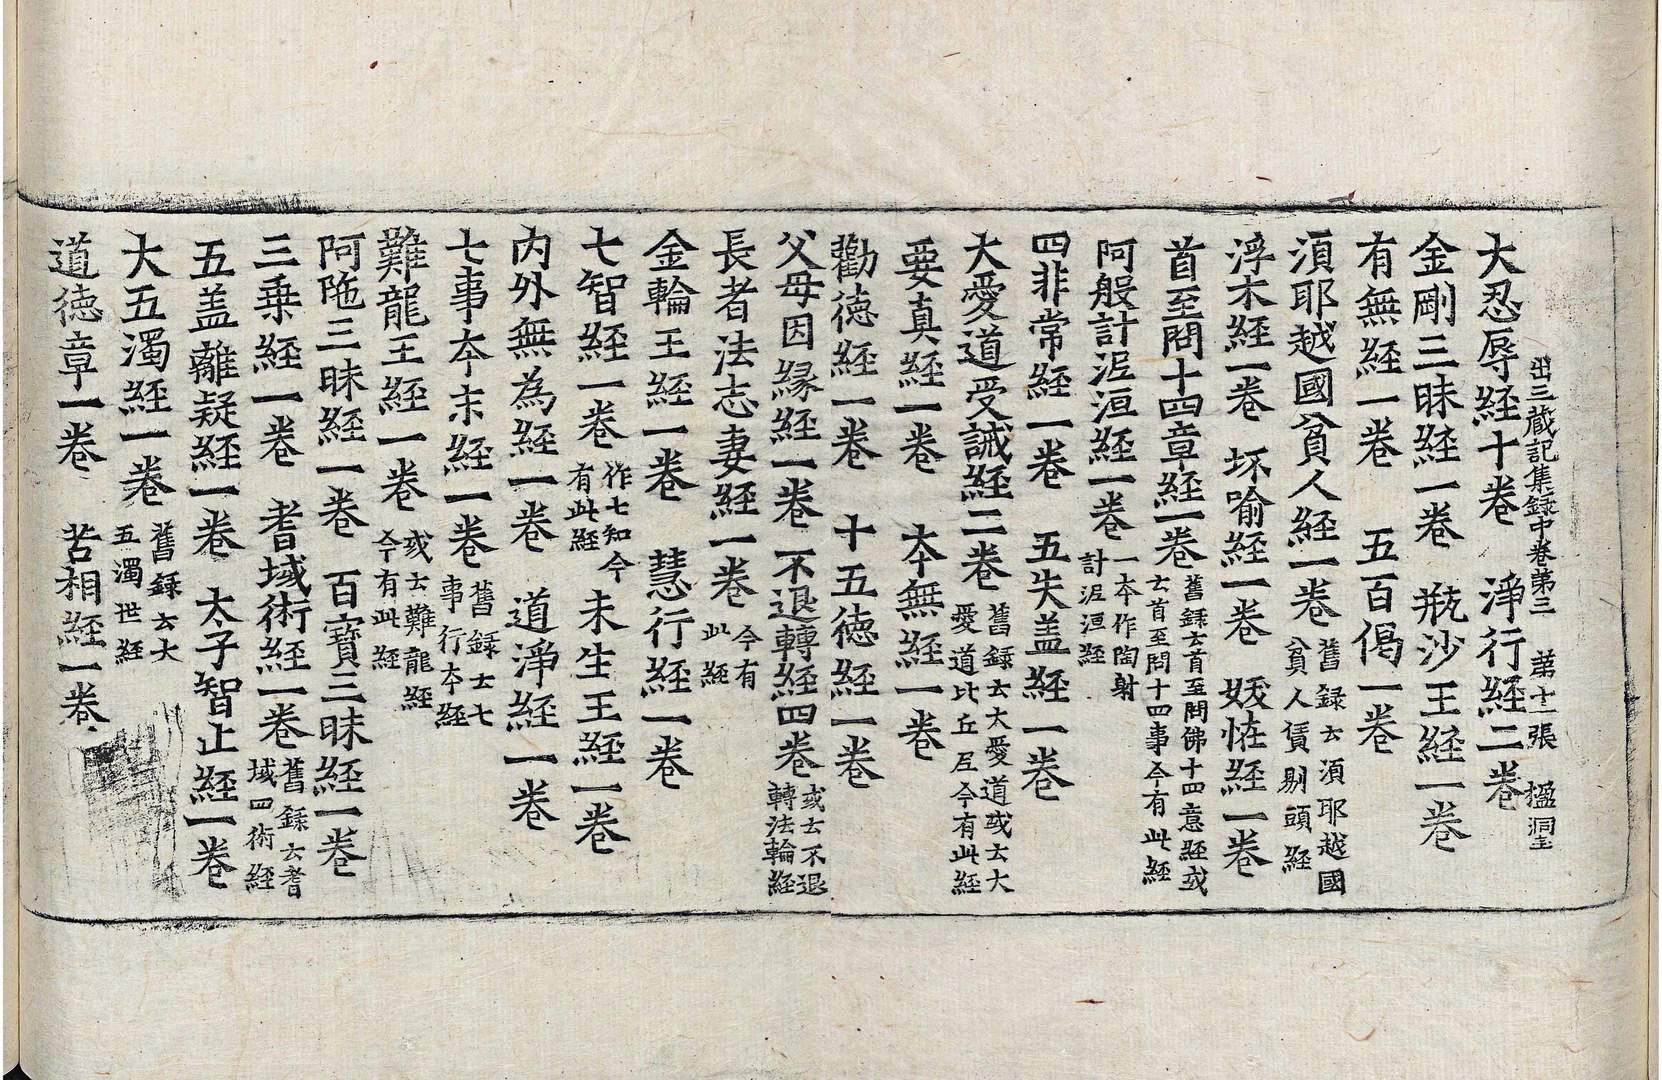 出三蔵記集録中卷第三　第十二張　楹洞
大忍辱経十卷　淨行経二卷
金剛三昧経一卷　瓶沙王経一卷
有無経一卷　五百偈一卷
湏耶越國貧人経一卷　舊録云湏耶越國貧人賃剔頭経
浮木経一卷　坏喻経一卷　妭恠経一卷
首至問十四章経一卷　舊録云首至問佛十四意経或云首至問十四事今有此経
阿般計泥洹経一卷　一夲作陶射計泥洹経
四非常経一卷　五失盖経一卷
大愛道受誡経二卷　舊録云大愛道或云大愛道比丘尼今有此経
要真経一卷　夲無経一卷
勸徳経一卷　十五徳経一卷
父母因縁経一卷　不退轉経四卷　或云不退轉法輪経
長者法志妻経一卷　今有此経
金輪王経一卷　慧行経一卷
七智経一卷　作七知今有此経　未生王経一卷
内外無為経一卷　道淨経一卷
七事夲末経一卷　舊録云七事行夲経
難龍王経一卷　或云難龍経今有此経
阿陁三昧経一卷　百寳三昧経一卷
三乗経一卷　耆域術経一卷　舊録云耆域四術経
五盖離疑経一卷　太子智止経一卷
大五濁経一卷　舊録云大五濁世経
道徳章一卷　苦相経一卷